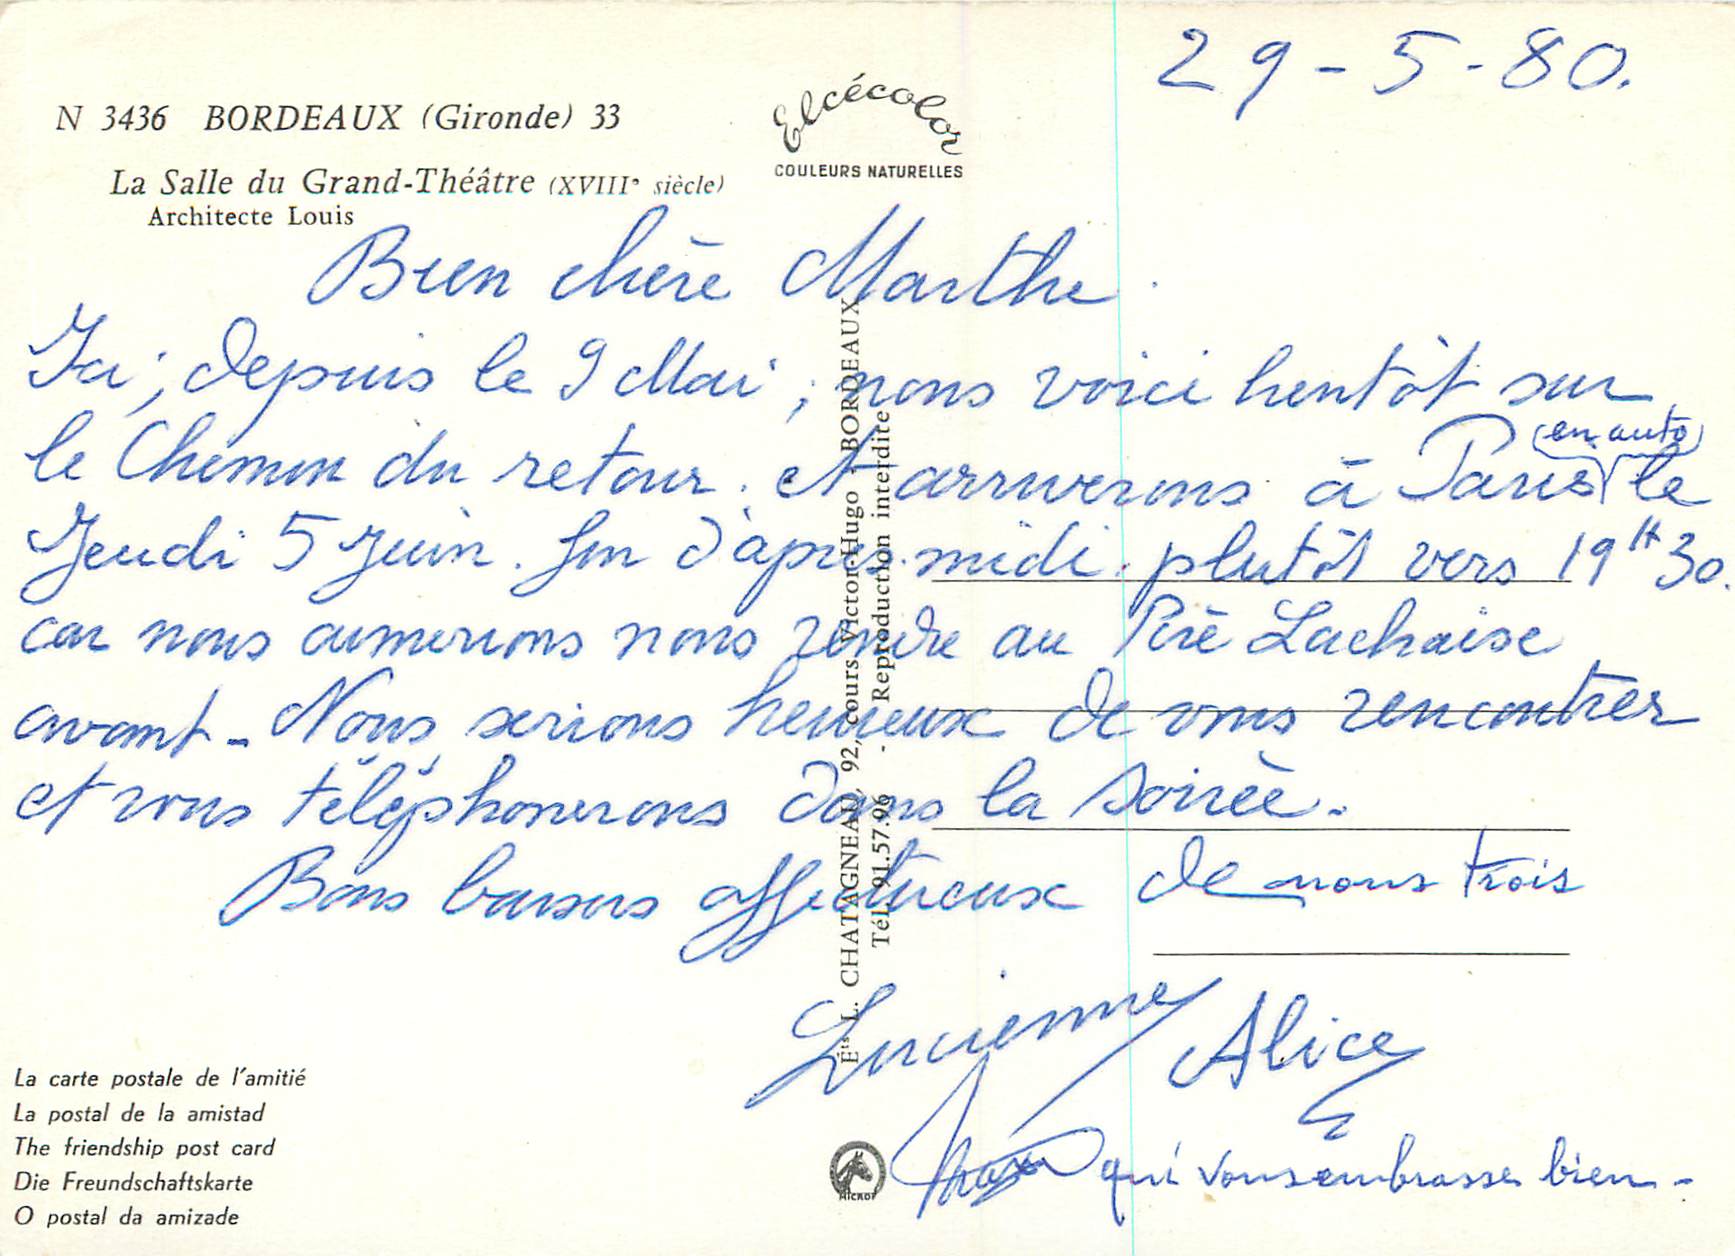 29-5-80.
N 3436 BORDEAUX (Gironde) 33
La Salle du Grand-Théâtre (XVIIIe siècle)
Architecte Louis
Elcécolor
COULEURS NATURELLES
Bien chère Marthe.
Ici, depuis le 9 Mai, nous voici bientôt sur
le Chemin du retour. et arriverons à Paris (en auto) le
Jeudi 5 Juin. fin d'après-midi. plutôt vers 19H30.
car nous aimerions nous rendre au Père Lachaise
avant_ Nous serions heureux de vous rencontrer
et vous téléphonerons dans la soirée.
Bons baisers affectueux de nous trois
Lucienne Alice
qui vous embrasse bien-
Éts L. CHATAGNEAU, 92, cours Victor-Hugo - BORDEAUX
Tél. 91.57.96 - Reproduction interdite
La carte postale de l'amitié
La postal de la amistad
The friendship post card
Die Freundschaftskarte
O postal da amizade
MICRO